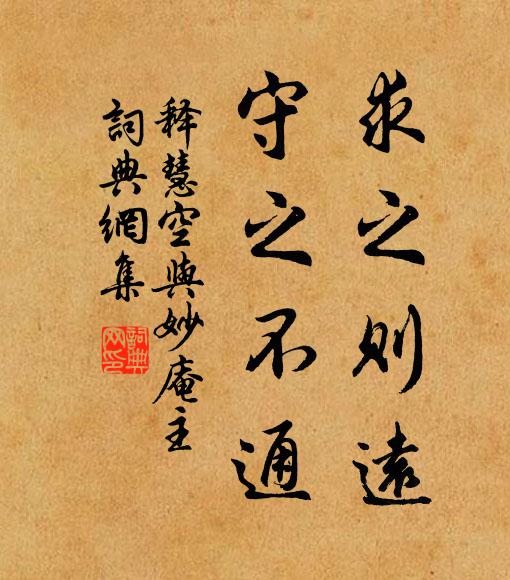 求之则遠
守之不通
释慧空與妙庵主
詞典網集
詞典網印